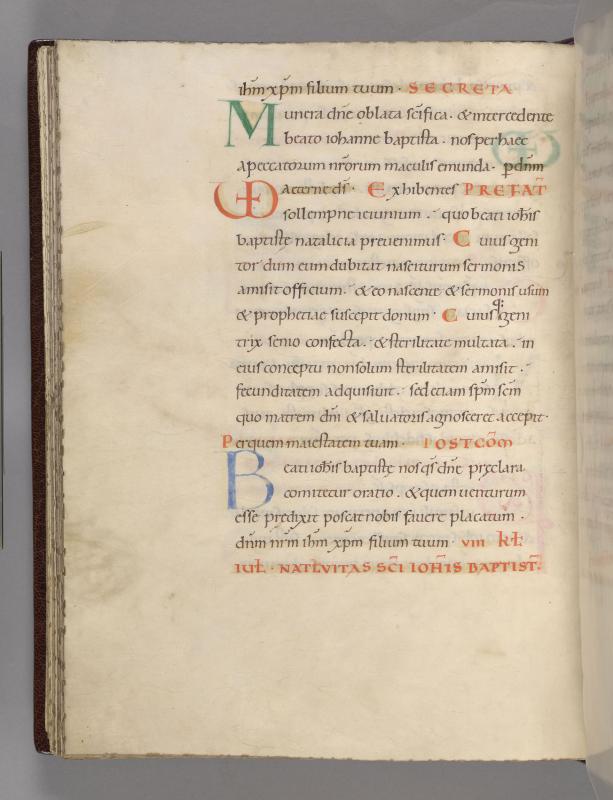 ihm xpm filium tuum · SECRETA
Munera dne oblata scifica · & intercedente
beato iohanne baptista · nos per haec
a peccatorum nrorum maculis emunda · p dnm
VD aeterne ds · Exhibentes PREFAT
sollempne ieiunium · quo beati iohis
baptistę natalicia preuenimus · Cuius geni
tor dum eum dubitat nasciturum sermonis
amisit officium · & eo nascente & sermonis usum
& prophetiae suscepit donum · Cuiusq; geni
trix senio confecta · & sterilitate multata · in
eius conceptu non solum sterilitatem amisit ·
fecunditatem adquisiuit · sed etiam spm scm
quo matrem dni & saluatoris agnosceret accepit ·
Per quem maiestatem tuam · POSTCOM
Beati iohis baptistę nos qs dne pręclara
comitetur oratio · & quem uenturum
esse predixit poscat nobis fauere placatum ·
dnm nrm ihm xpm filium tuum · VIII KL
IUL · NATIVITAS SCI IOHIS BAPTIST ·